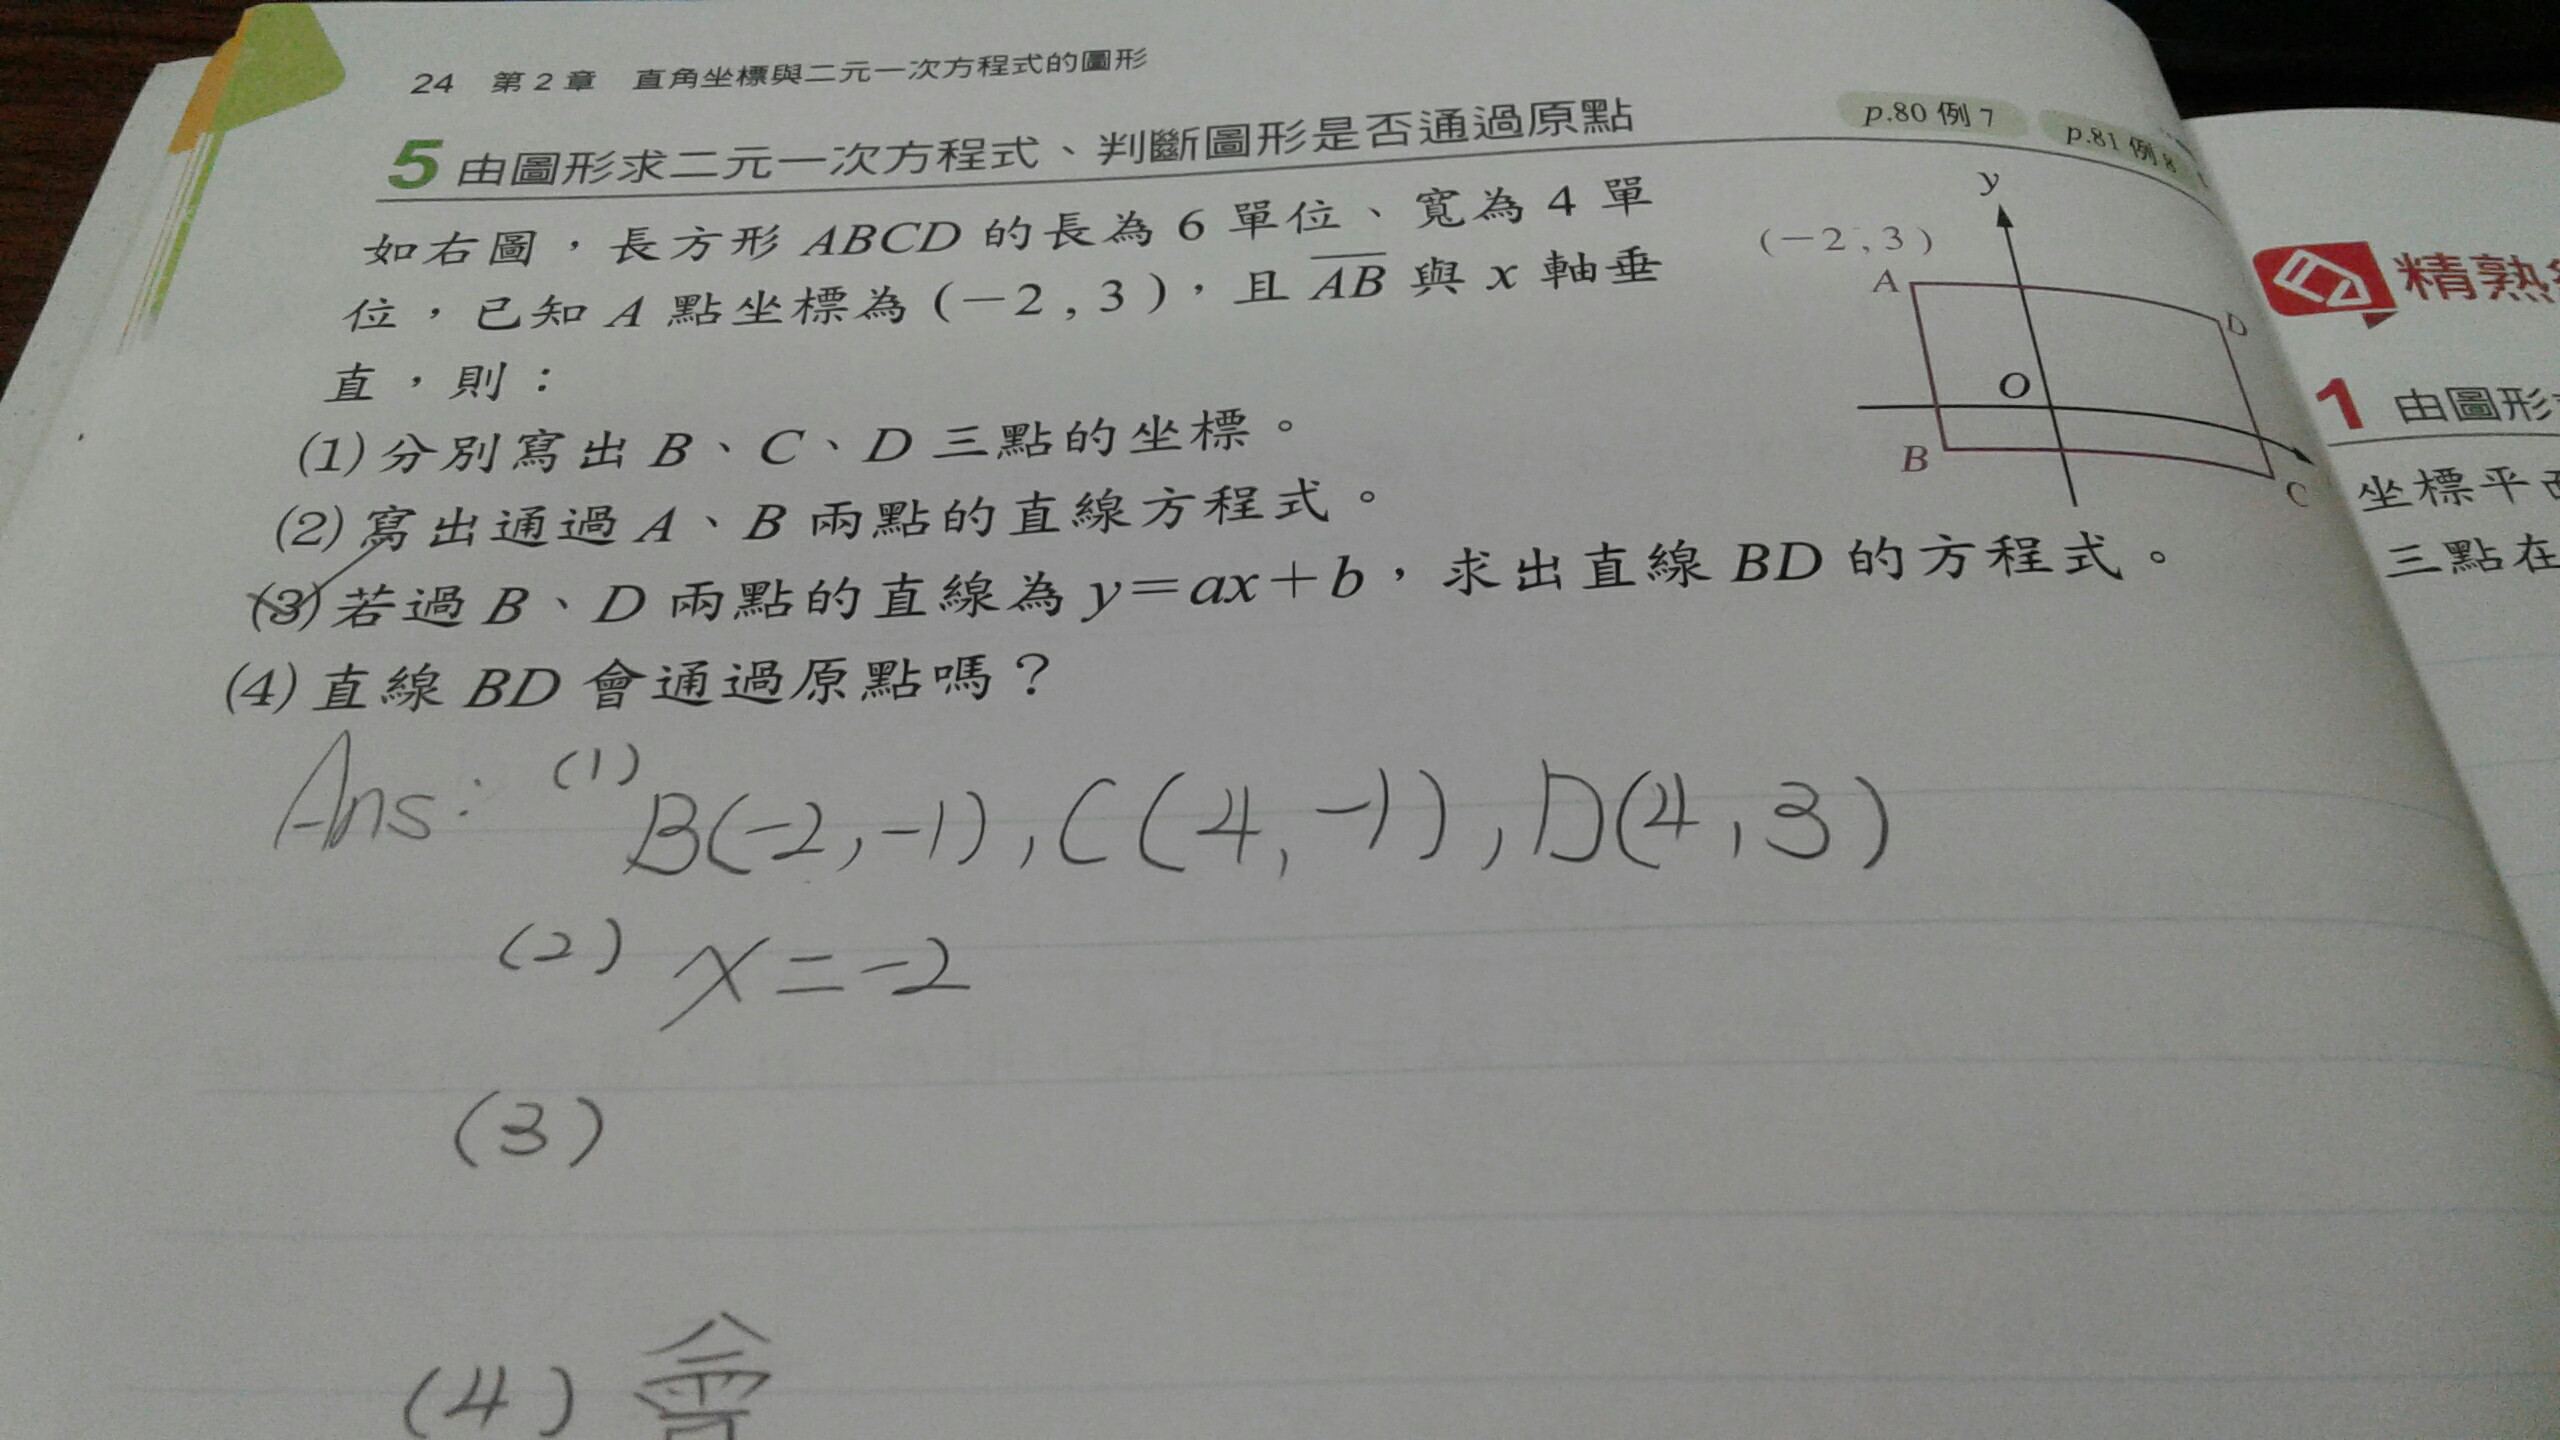 24 第2章 直角坐標與二元一次方程式的圖形
5 由圖形求二元一次方程式、判斷圖形是否通過原點
p.80 例7
p.81 例8
如右圖，長方形 ABCD 的長為 6 單位、寬為 4 單
位，已知 A 點坐標為 (－2 , 3 )，且 AB 與 x 軸垂
直，則：
(1)分別寫出 B、C、D 三點的坐標。
(2)寫出通過 A、B 兩點的直線方程式。
(3)若過 B、D 兩點的直線為 y＝ax＋b，求出直線 BD 的方程式。
(4)直線 BD 會通過原點嗎？
y
(－2 , 3 )
A
D
O
B
C
Ans: (1) B(-2,-1), C(4,-1), D(4,3)
(2) x=-2
(3)
(4) 會
精熟
1 由圖形
坐標平
三點在